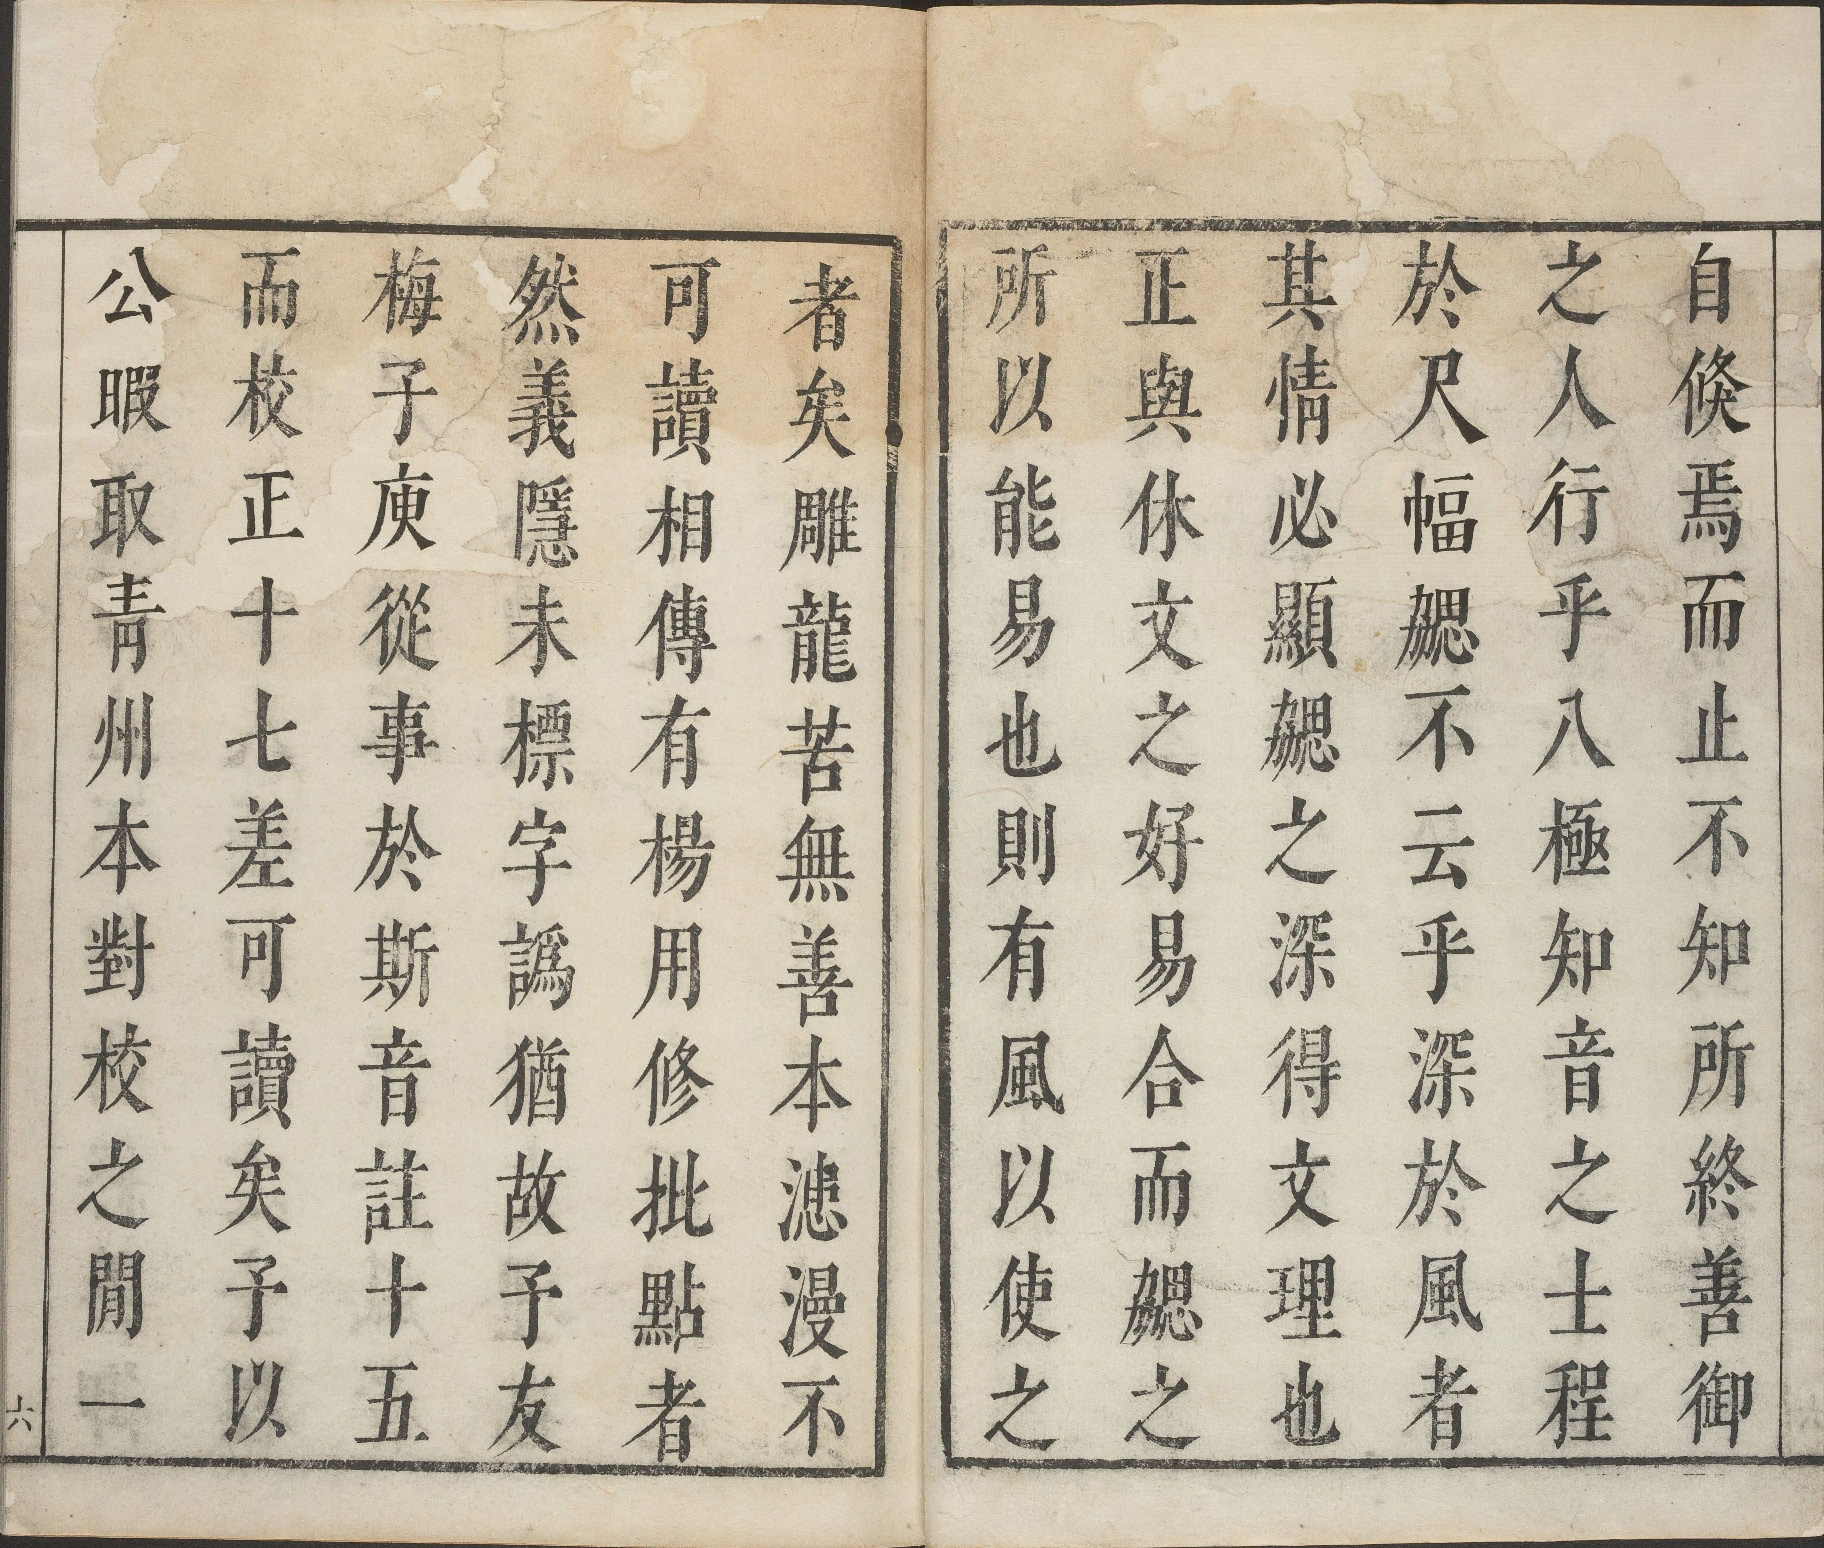 自倐焉而止不知所終善御
之人行乎八極知音之士程
於尺幅勰不云乎深於風者
其情必顯勰之深得文理也
正與休文之好易合而勰之
所以能易也則有風以使之
者矣雕龍苦無善本漶漫不
可讀相傳有楊用修批點者
然義隱未標字譌猶故予友
梅子庾從事於斯音註十五
而校正十七差可讀矣予以
公暇取青州本對校之閒一
六